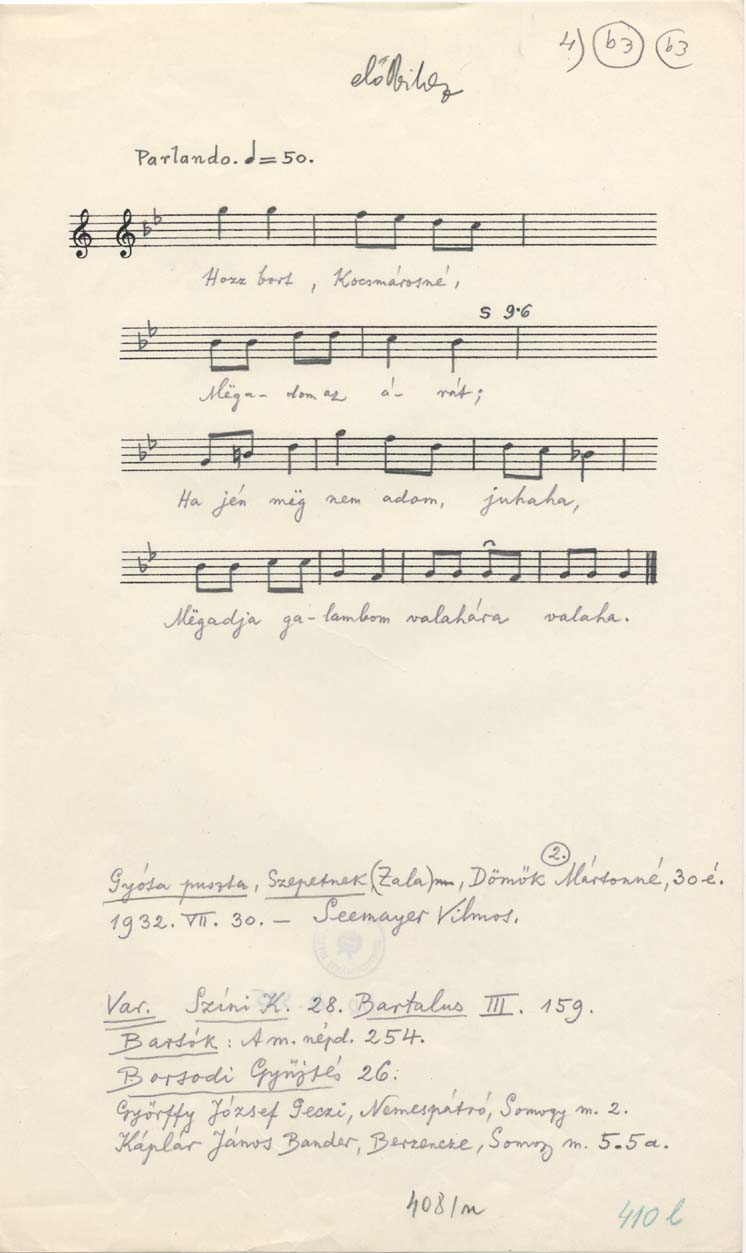 4) b3 b3
Parlando. ♩=50.
Hozz bort, Kocsmárosné,
S 9·6
Mëga- dom az á- rát;
Ha jén mëg nem adom, juhaha,
Mëgadja ga-lambom valahára valaha.
2.
Gyóta puszta, Szepetnek (Zala)m, Dömők Mártonné, 30 é.
1932. VII. 30. – Seemayer Vilmos.
Var. Színi K. 28. Bartalus III. 159.
Bartók: A m. népd. 254.
Borsodi Gyűjtés 26:
Győrffy József Geczi, Nemespátró, Somogy m. 2.
Káplár János Bander, Berzencze, Somogy m. 5. 5a.
408/m
410 l